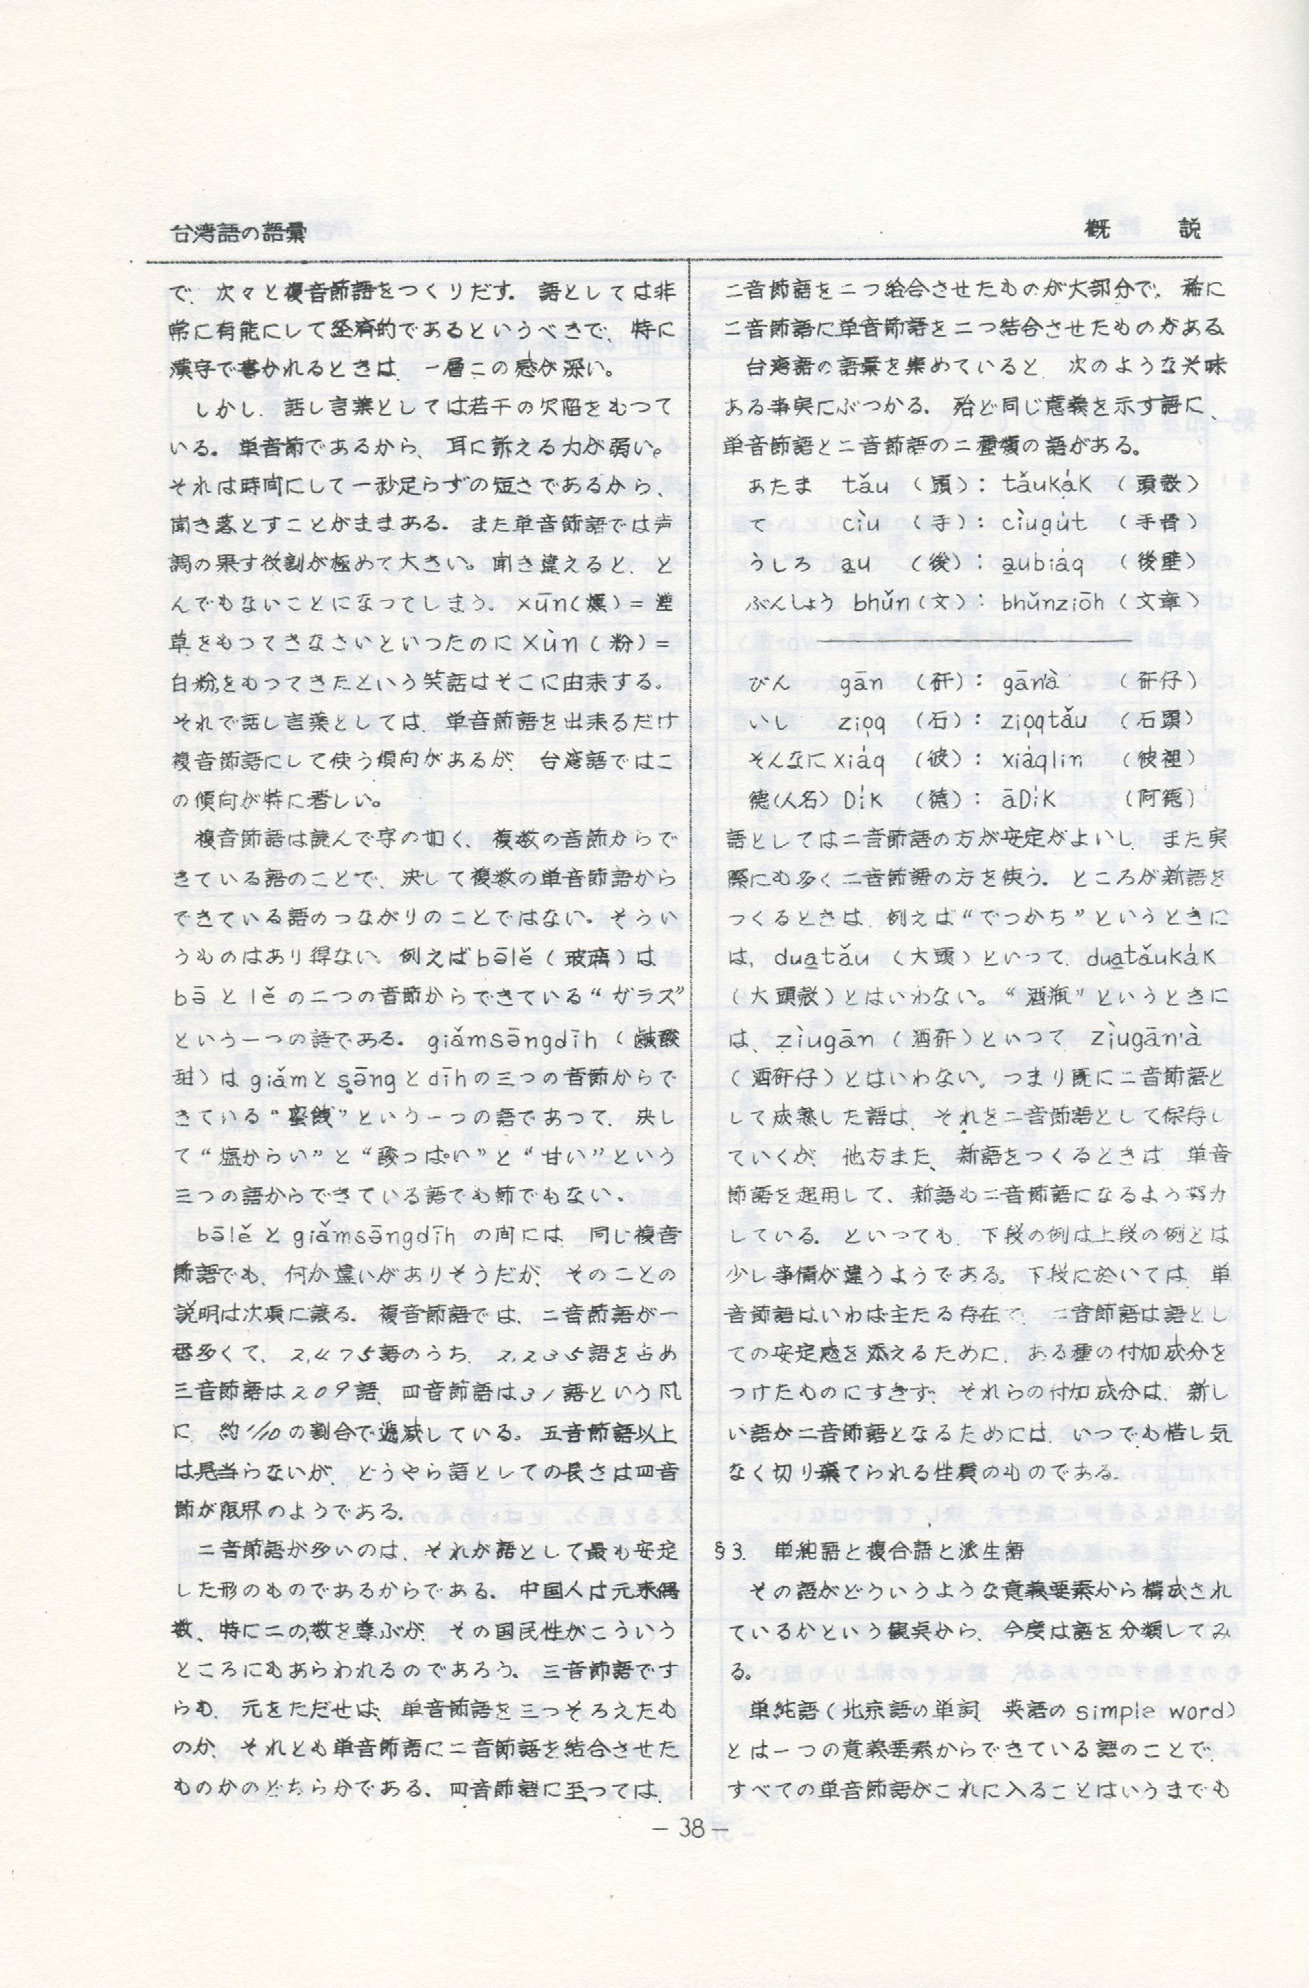 台湾語の語彙
概　説
で、次々と複音節語をつくりだす。語としては非
常に有能にして経済的であるというべきで、特に
漢字で書かれるときは、一層この感が深い。
しかし、話し言葉としては若干の欠陥をもつて
いる。単音節であるから、耳に訴える力が弱い。
それは時間にして一秒足らずの短さであるから、
聞き落とすことがままある。また単音節語では声
調の果す役割が極めて大きい。聞き違えると、と
んでもないことになつてしまう。xūn(燻)＝煙
草をもつてきなさいといつたのにxùn(粉)＝
白粉をもつてきたという笑話はそこに由来する。
それで話し言葉としては、単音節語を出来るだけ
複音節語にして使う傾向があるが、台湾語ではこ
の傾向が特に著しい。
複音節語は読んで字の如く、複数の音節からで
きている語のことで、決して複数の単音節語から
できている語のつながりのことではない。そうい
うものはあり得ない。例えばbēlě(玻璃)は
bēとlěの二つの音節からできている“ガラス”
という一つの語である。giǎmsēngdīh(鹹酸
甜)はgiǎmとsēngとdīhの三つの音節からで
きている“蜜餞”という一つの語であつて、決し
て“塩からい”と“酸っぱい”と“甘い”という
三つの語からできている語でも節でもない。
bēlěとgiǎmsēngdīhの間には、同じ複音
節語でも、何か違いがありそうだが、そのことの
説明は次項に譲る。複音節語では、二音節語が一
番多くて、2,475語のうち、2,235語を占め
三音節語は209語、四音節語は31語という風
に、約1/10の割合で逓減している。五音節語以上
は見当らないが、どうやら語としての長さは四音
節が限界のようである。
二音節語が多いのは、それが語として最も安定
した形のものであるからである。中国人は元来偶
数、特に二の数を尊ぶが、その国民性がこういう
ところにもあらわれるのであろう。三音節語です
らも、元をただせば、単音節語を三つそろえたも
のか、それとも単音節語に二音節語を結合させた
ものかのどちらかである。四音節語に至つては、
二音節語を二つ結合させたものが大部分で、稀に
二音節語に単音節語を二つ結合させたものがある
台湾語の語彙を集めていると、次のような興味
ある事実にぶつかる。殆ど同じ意義を示す語に、
単音節語と二音節語の二種類の語がある。
あたま　tǎu　(頭)：tǎukák　(頭殼)
て　cìu　(手)：cìugút　(手骨)
うしろ　a̲u　(後)：a̲ubiáq　(後壁)
ぶんしょう　bhǔn(文)：bhǔnziōh(文章)
びん　gān　(矸)：gān'à　(矸仔)
いし　zioq　(石)：zioqtǎu　(石頭)
そんなに　xiáq　(彼)：xiáqlin　(彼裡)
徳(人名)　Dík　(徳)：āDík　(阿徳)
語としては二音節語の方が安定がよいし、また実
際にも多く二音節語の方を使う。ところが新語を
つくるときは、例えば“でっかち”というときに
は、dua̲tǎu(大頭)といつて、dua̲tǎukák
(大頭殼)とはいわない。“酒瓶”というときに
は、zìugān(酒矸)といつて　zìugān'à
(酒矸仔)とはいわない。つまり既に二音節語と
して成熟した語は、それを二音節語として保存し
ていくが、他方また、新語をつくるときは、単音
節語を起用して、新語も二音節語になるよう努力
している。といつても、下段の例は上段の例とは
少し事情が違うようである。下段に於いては、単
音節語はいわば主たる存在で、二音節語は語とし
ての安定感を添えるために、ある種の付加成分を
つけたものにすぎず、それらの付加成分は、新し
い語が二音節語となるためには、いつでも惜し気
なく切り棄てられる性質のものである。
§3.　単純語と複合語と派生語
その語がどういうような意義要素から構成され
ているかという観点から、今度は語を分類してみ
る。
単純語(北京語の単詞、英語のsimple word)
とは一つの意義要素からできている語のことで、
すべての単音節語がこれに入ることはいうまでも
－38－